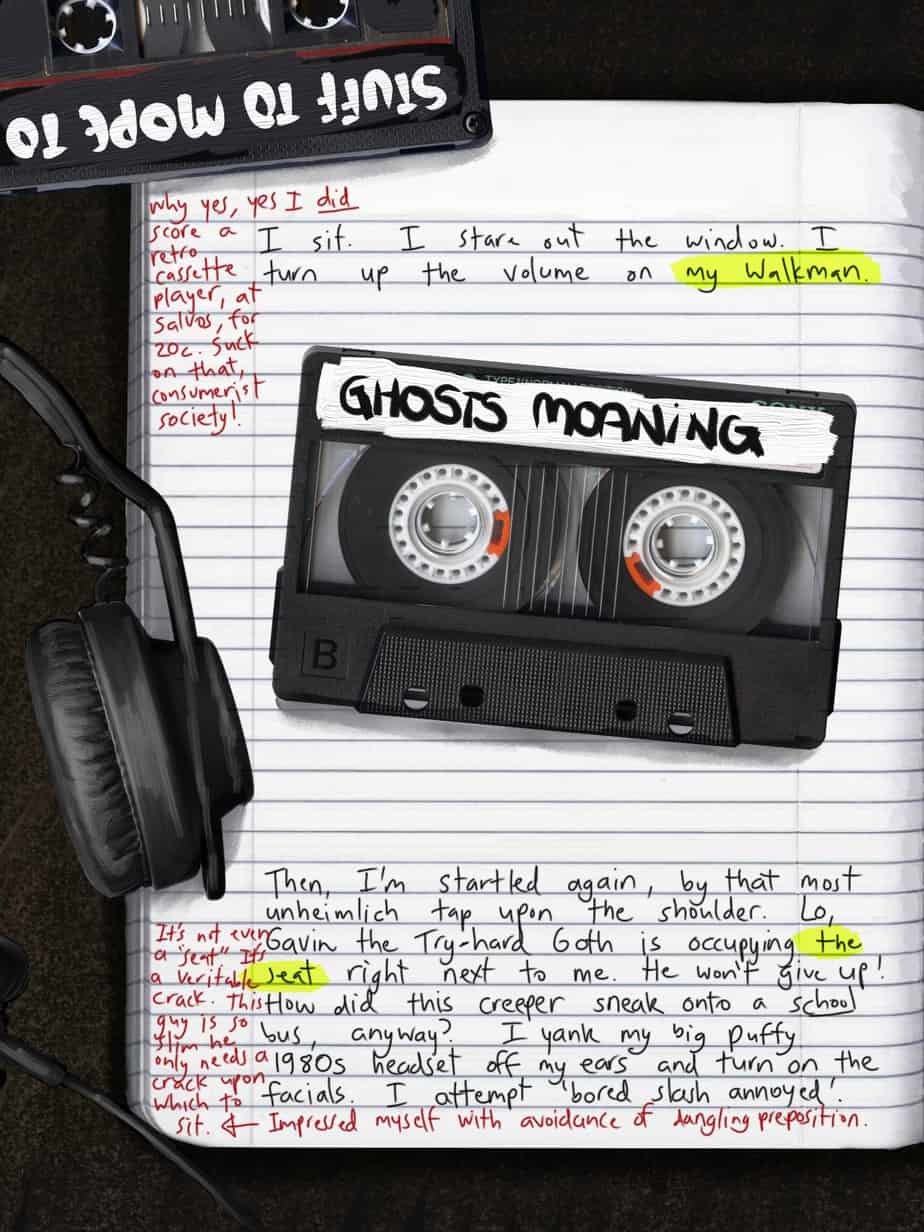 Stuff To Mope To
why yes, yes I did
score a
retro
cassette
player, at
salvos, for
20c. Suck
on that,
consumerist
society!
I sit. I stare out the window. I
turn up the volume on my Walkman.
GHOSTS MOANING
B
Then, I'm startled again, by that most
unheimlich tap upon the shoulder. Lo,
Gavin the Try-hard Goth is occupying the
seat right next to me. He won't give up!
How did this creeper sneak onto a school
bus, anyway? I yank my big puffy
1980s headset off my ears and turn on the
facials. I attempt 'bored slash annoyed'.
It's not even
a "seat" It's
a veritable
crack. This
guy is so
slim he
only needs a
crack upon
which to
sit. ← Impressed myself with avoidance of dangling preposition.